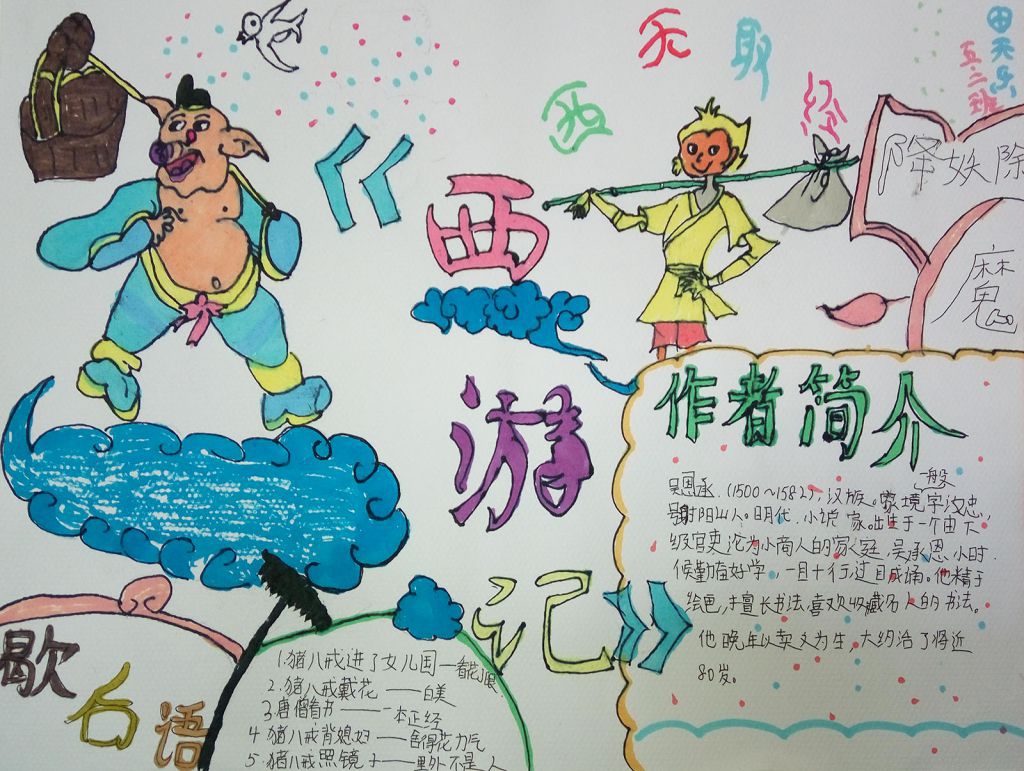 西天取经
田天乐
五二班
降妖除
魔
《西游记》
作者简介
吴恩承.(1500~1582),汉族。家境一般 字汝忠,
号射阳山人。明代.小说家。出生于一个由下
级官吏沦为小商人的家庭,吴承恩小时
候勤奋好学,一目十行,过目成诵。他精于
绘画,擅长书法,喜欢收藏名人的书法。
他晚年以卖文为生,大约活了将近
80岁。
歇后语
1.猪八戒进了女儿国——看花了眼
2.猪八戒戴花——自美
3.唐僧的书——一本正经
4.猪八戒背媳妇——舍得花力气
5.猪八戒照镜子——里外不是人